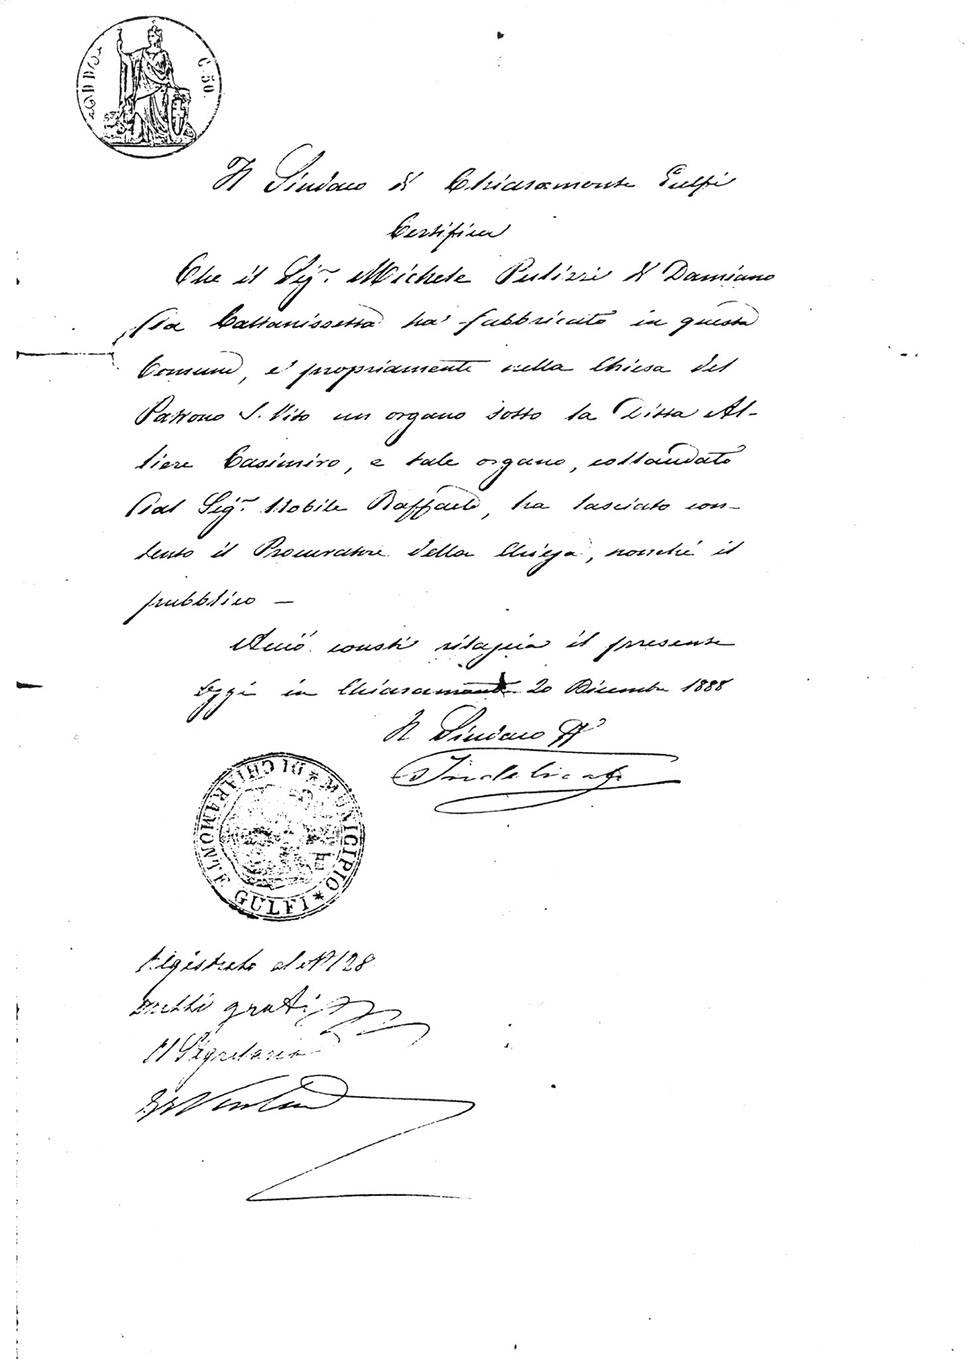 C. 50.
Il Sindaco di Chiaramonte Gulfi
Certifica
Che il Sigr. Michele Polizzi di Damiano
da Caltanissetta ha fabbricato in questa
Comune, e propriamente nella Chiesa del
Patrono S. Vito un organo sotto la Ditta Al-
liere Casimiro, e tale organo, collaudato
dal Sigr. Nobile Raffaele, ha lasciato con-
tento il Procuratore della Chiesa, nonché il
pubblico —
Acciò consti rilascia il presente
Oggi in Chiaramonte 20 Dicembre 1888
Il Sindaco
Indelicato
MUNICIPIO * DI CHIARAMONTE GULFI *
Registrato al N. 128
Diritti gratis
Il Segretario